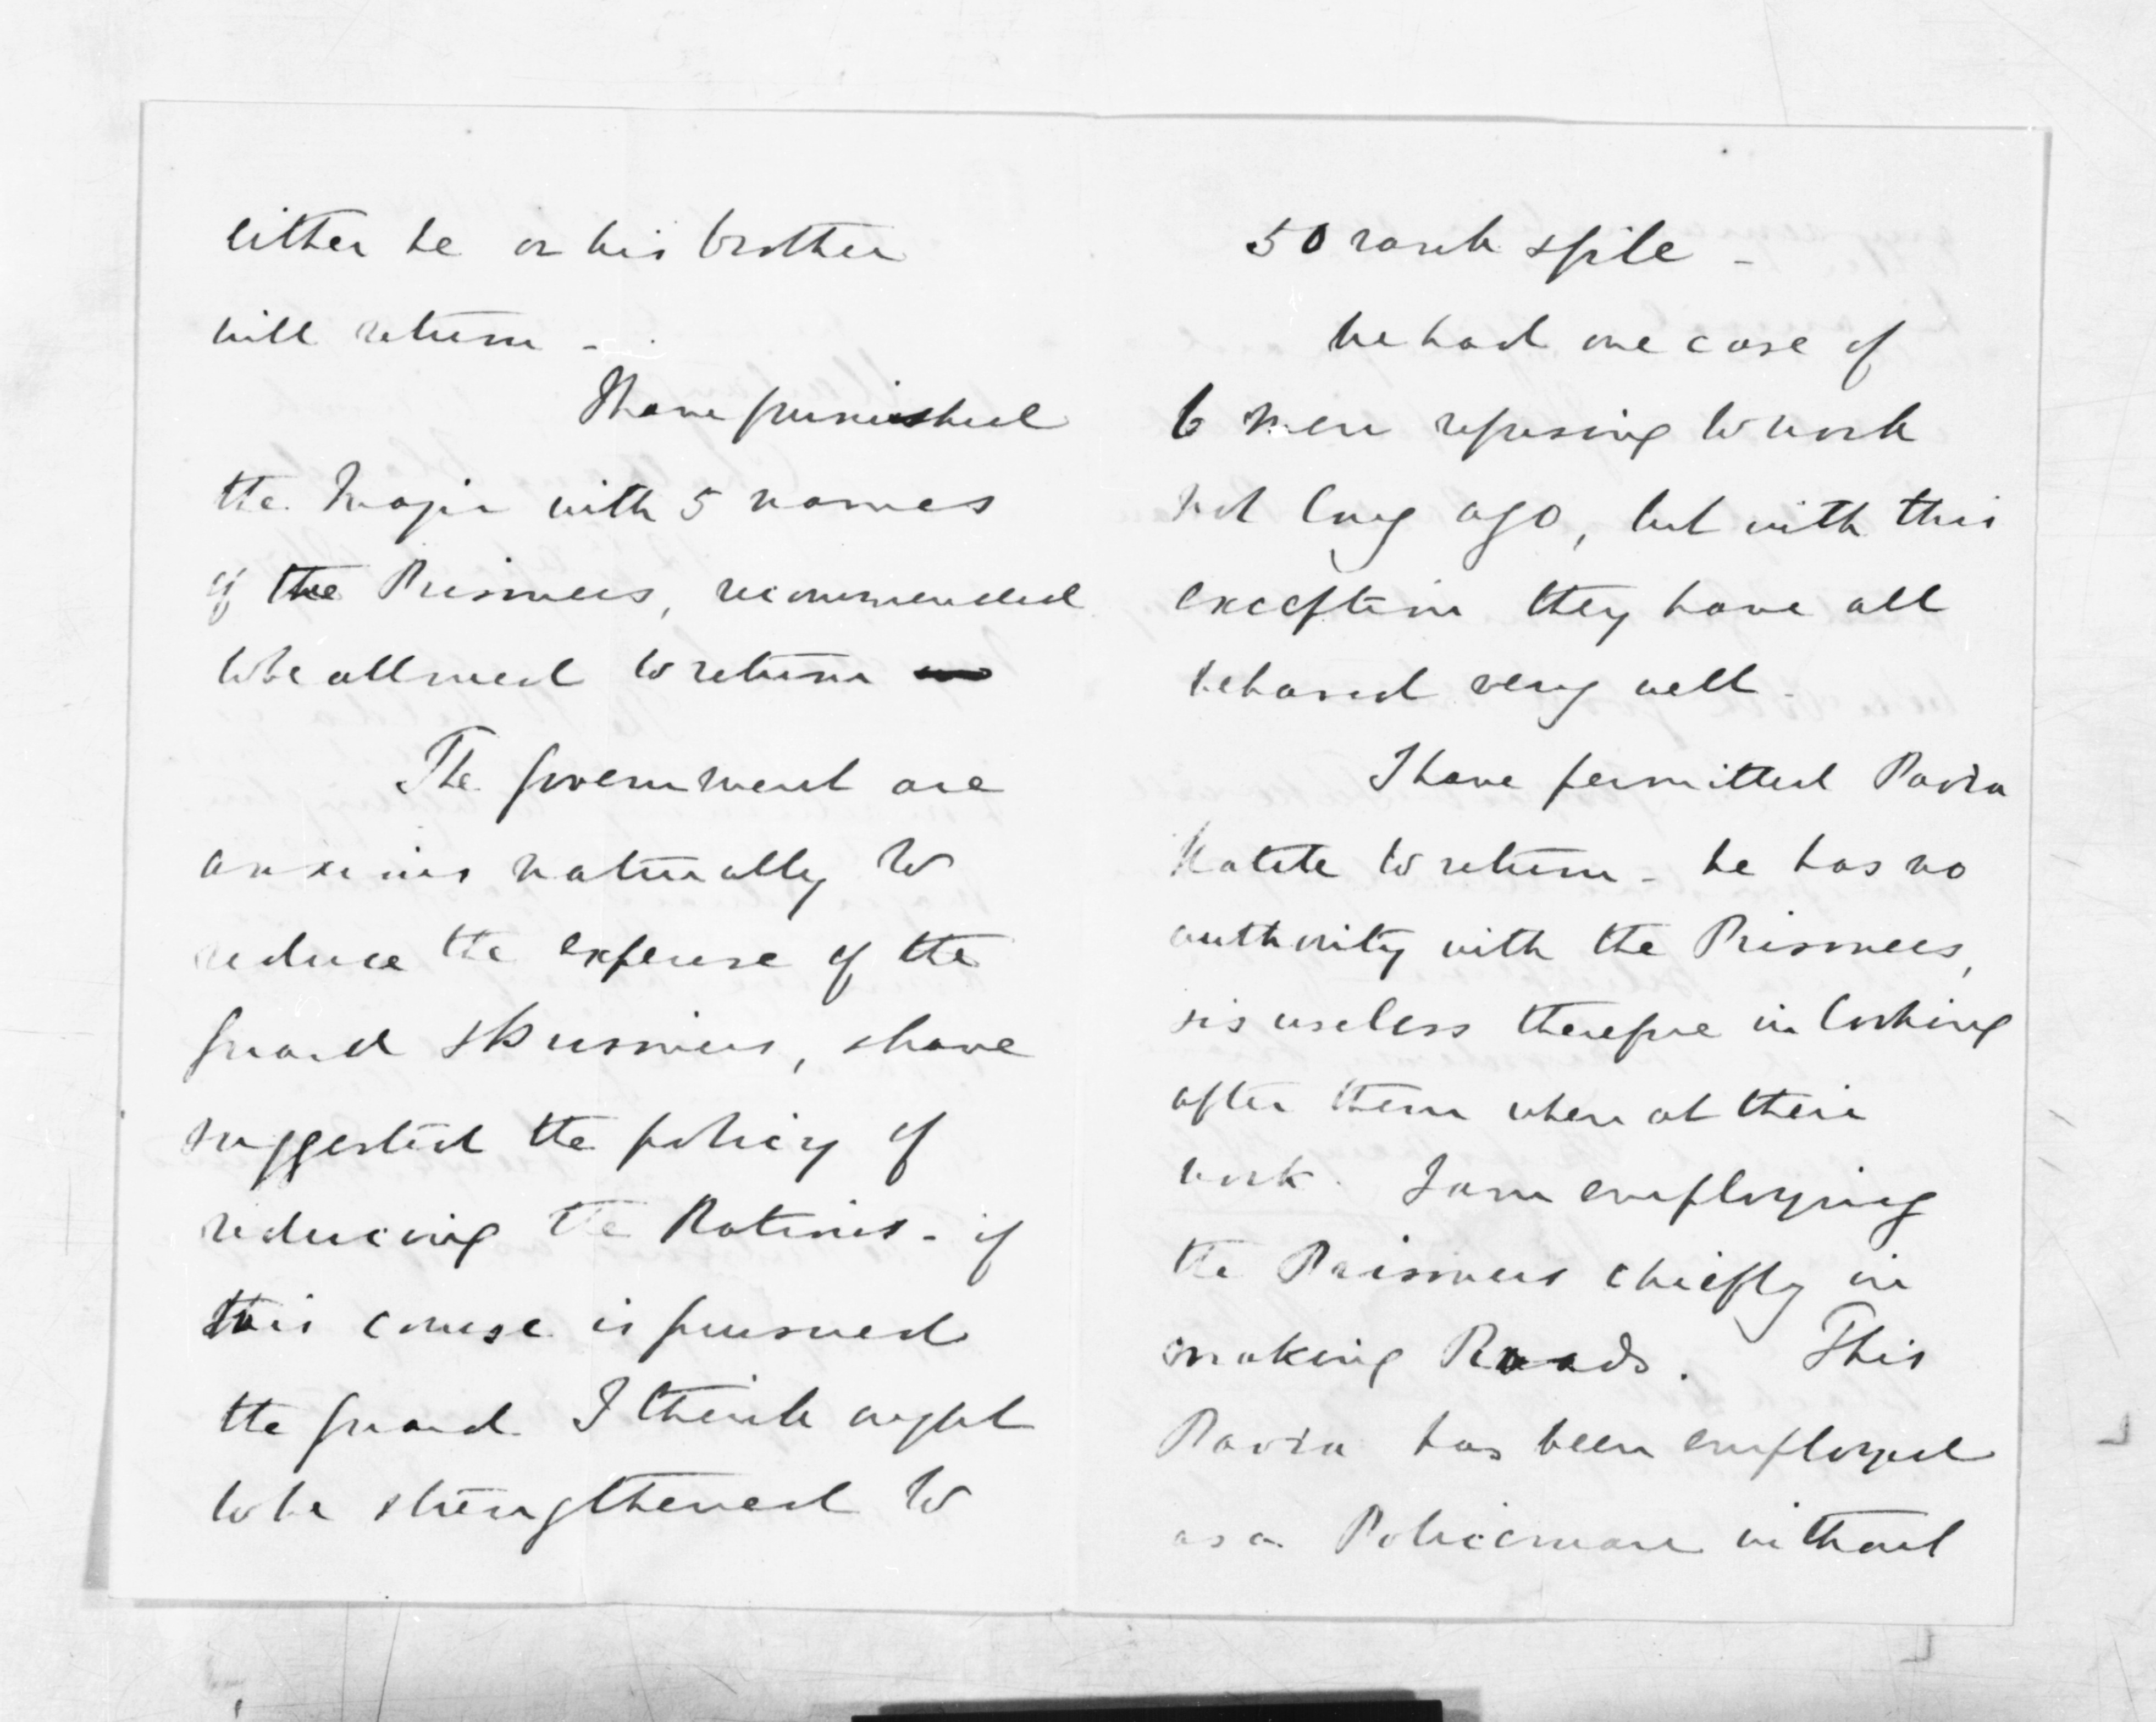 either he or his brother
will return -
I have furnished
the Major with 5 names
of the Prisoners, recommended
to be allowed to return
The Government are
anxious naturally to
reduce the expense of the
guard & Prisoners, & have
suggested the policy of
reducing the Rations - if
this course is pursued
the guard I think ought
to be strengthened to
50 rank & file -
We had one case of
6 men refusing to work
not long ago, but with this
exception they have all
behaved very well -
I have permitted Paora
to return - he has no
authority with the Prisoners,
& is useless therefore in looking
after them when at their
work. I am employing
the Prisoners chiefly in
making Roads. This
Paora has been employed
as a Policeman without